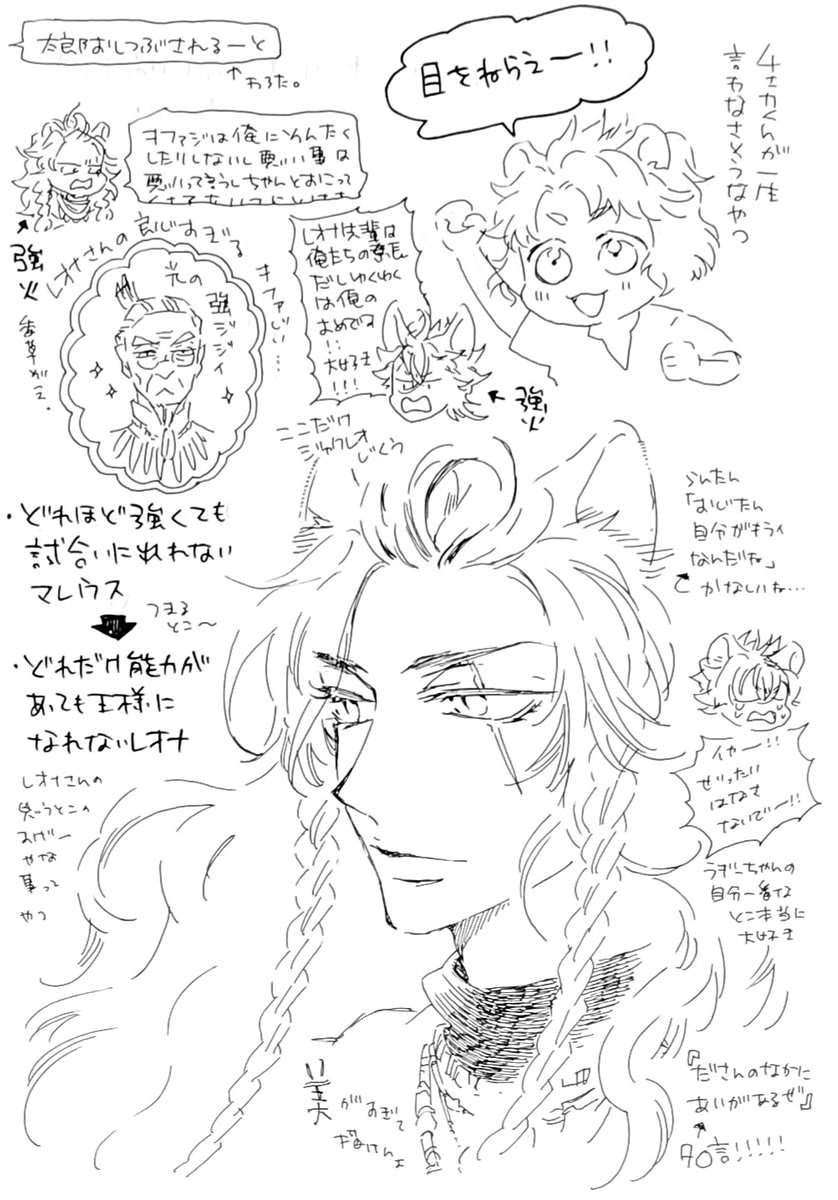 太郎おしつぶされるーと
わろた。
目をねらえー!!
言わなさそうなやつ
キファジは俺にそんたく
したりしないし悪い事は
悪いって言うしちゃんとおこって
強火
レオナさんの良心すぎる
光の強ジジイ
キファじい…
レオナ先輩は
俺たちの寮長
だしゆくゆく
は俺の
およめでは
!!
大好き
!!!
強火
ここだけ
ジャクレオ
じくう
・どれほど強くても
試合に出れない
マレウス
つまる
とこ〜
・どれだけ能力が
あっても王様に
なれないレオナ
レオナさんの
思うとこの
事って
やつ
らんたん
「おじたん
自分がキライ
なんだね」
かなしいね…
イヤー!!
ぜったい
はなさ
ないでー!!
うぎーちゃんの
自分一番な
とこ本当に
大好き
美がすぎて
描けんよ
『ださんのなかに
あいがあるぜ』
名言!!!!!